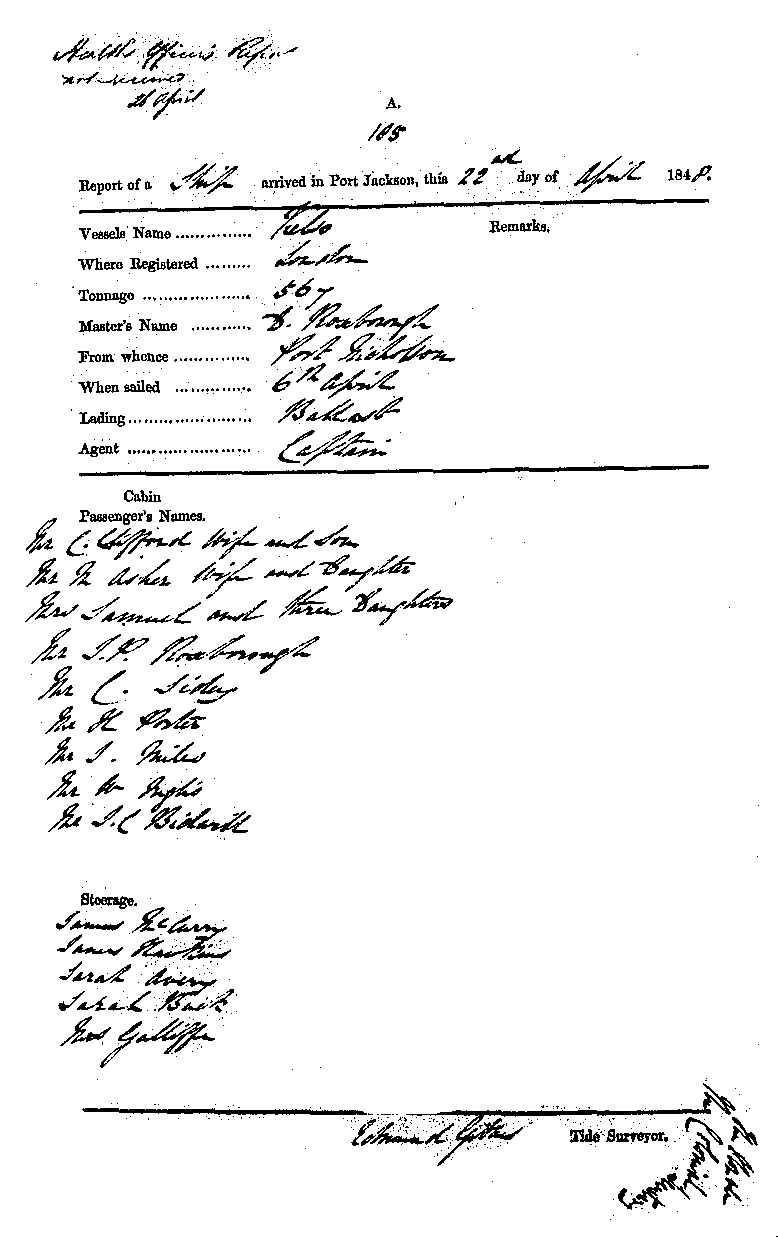 Health Officer's Report
not received
26 April
A.
105
Report of a Ship arrived in Port Jackson, this 22nd day of April 1848.
Vessels Name ............... Kelso Remarks.
Where Registered ......... London
Tonnage .................... 567
Master's Name ........... D. Roxborough
From whence .............. Port Nicholson
When sailed .............. 6th April
Lading ....................... Ballast
Agent ....................... Captain
Cabin
Passenger's Names.
Mr C. Clifford Wife and Son
Mr M Asher Wife and Daughter
Mrs Samuel and three Daughters
Mr J.P. Roxborough
Mr C. Sidey
Mr H Porter
Mr J. Miles
Mr Wm Inglis
Mr J.C Bidwill
Steerage.
James McCurry
James Hawkins
Sarah Avery
Sarah Buck
Mrs Galliffe
Edmund Tide Surveyor.
The Colonial